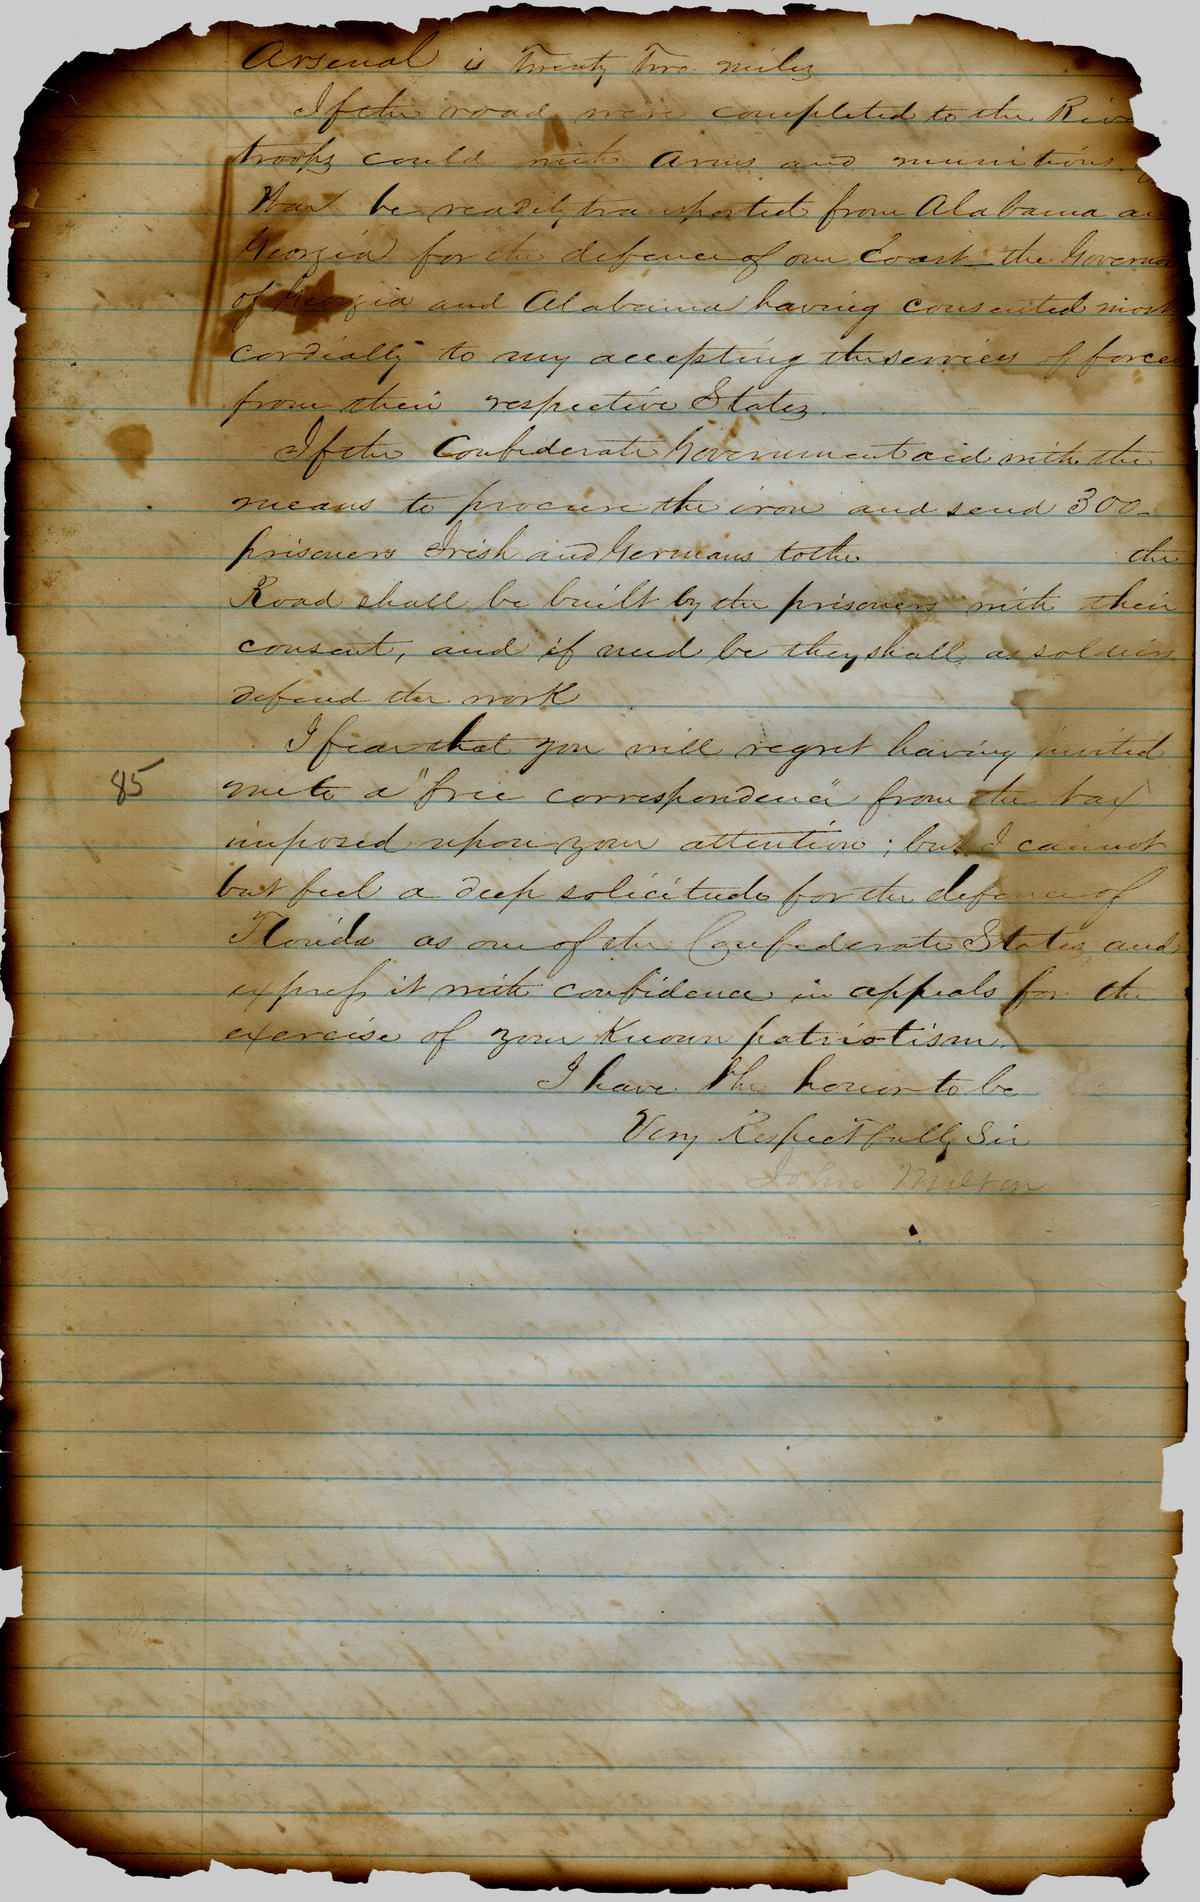 Arsenal is Twenty Two miles
If the road were completed to the Rive
troops could with Arms and munitions
War be readily transported from Alabama a
Georgia for the defence of our Coast – the Governor
of Georgia and Alabama having consented most
cordially to my accepting the services of forces
from their respective States.
If the Confederate Government aid with the
means to procure the iron and send 300
prisoners Irish and Germans to the the
Road shall be built by the prisoners with their
consent, and if need be they shall, as soldiers
defend the work
I fear that you will regret having invited
me to a "free correspondence" from the tax
imposed upon your attention; but I cannot
85
but feel a deep solicitude for the defence of
Florida as one of the Confederate States, and
express it with confidence in appeals for the
exercise of your Known patriotism.
I have the honor to be
Very Respectfully Sir
John Milton